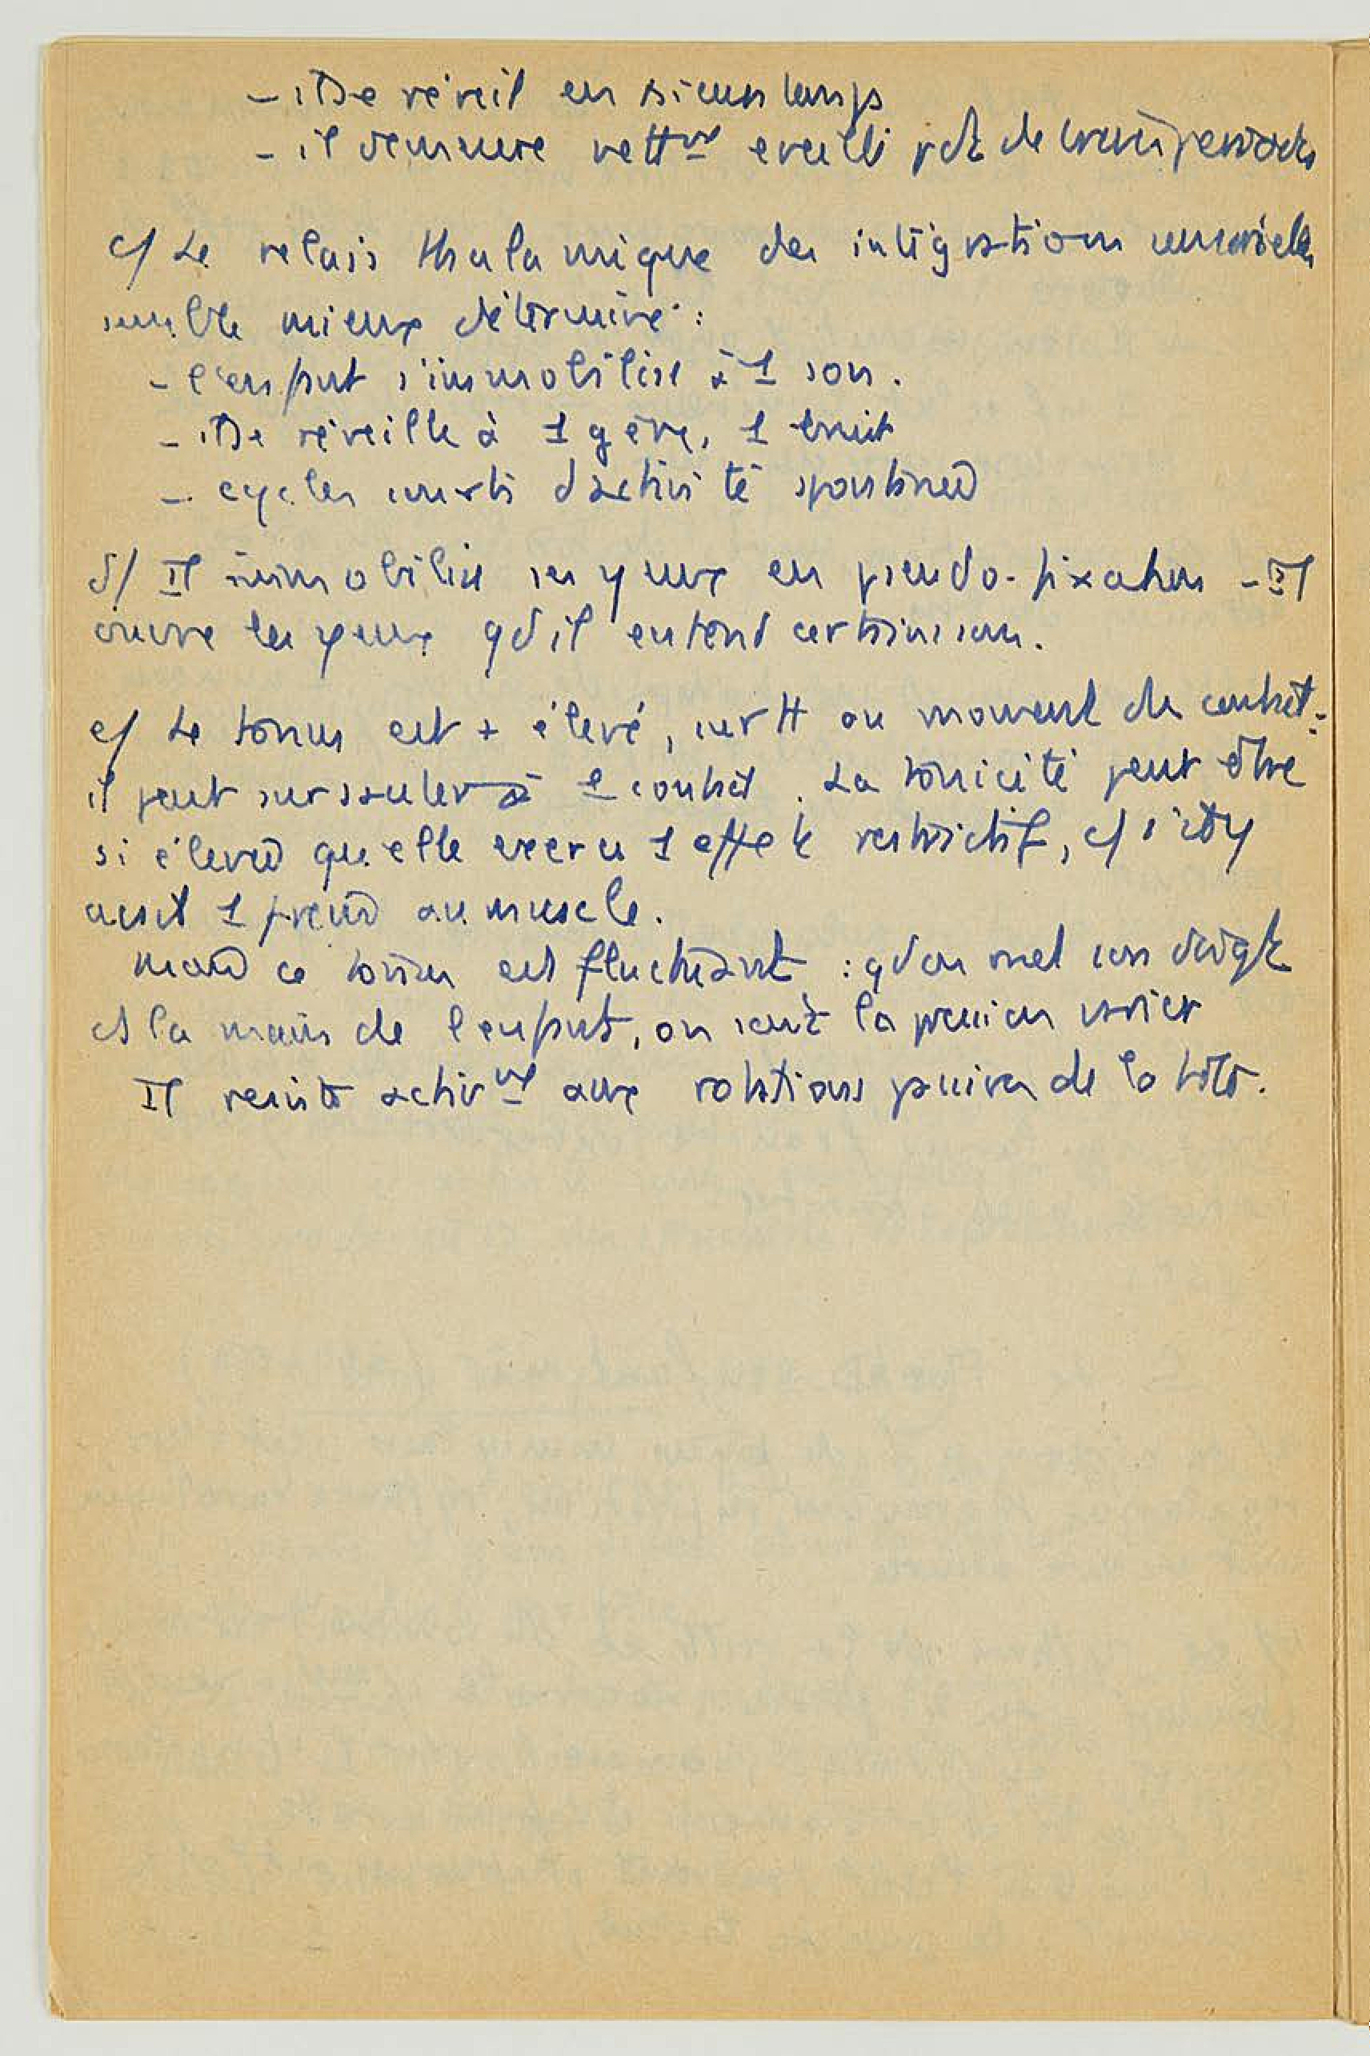 - il se réveil en sicurs lamps
- il demeure nettmt eveillé pdt de brèves periodes
c/ Le relais thalamique des intégrations sensorielles
semble mieux déterminé :
- l'enfant s'immobilise à 1 son.
- il se réveille à 1 gêne, 1 bruit
- cycles courts d'activité spontanée
d/ Il immobilise ses yeux en pseudo-fixation - Il
ouvre les yeux qd il entend certains sons.
e/ Le tonus est + élevé, surtt au moment du contact :
il peut sursauter à 1 contact. La tonicité peut être
si élevée qu'elle exerce 1 effet restrictif, c/ s'il y
avait 1 frein au muscle.
mais ce tonus est fluctuant : qd on met son doigt
ds la main de l'enfant, on sent la pression varier
Il resiste activmt aux rotations passives de la tête.